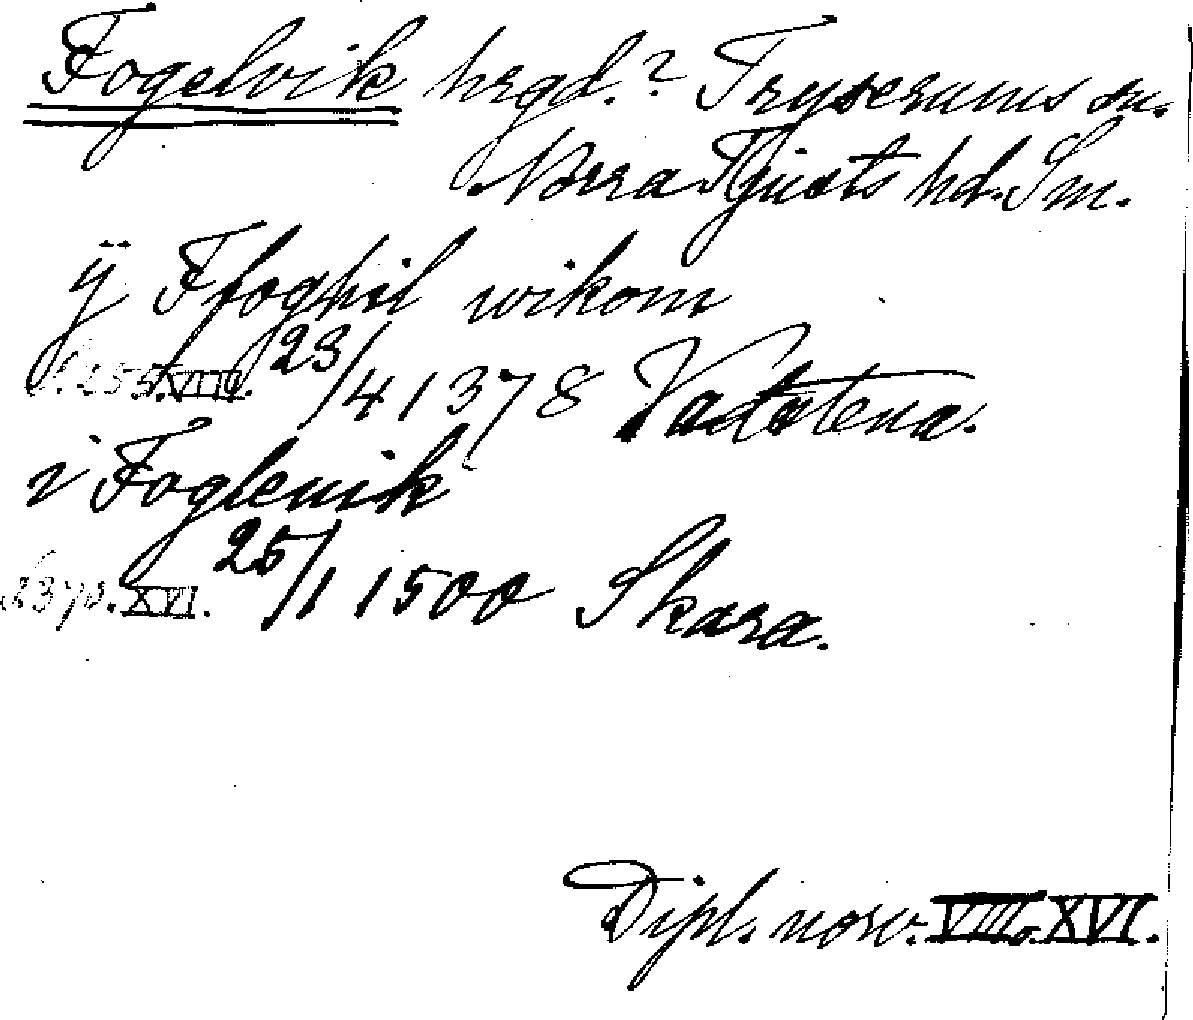 Fogelvik hrgd.? Tryserums sn.
Norra Tjusts hd. Sm.
ÿ Ffoghil wikom
s. 255. VIII. 23/4 1378 Vadstena.
i Foglewik
s. 370. XVI. 25/1 1500 Skara.
Dipl. norv. VIII. o. XVI.